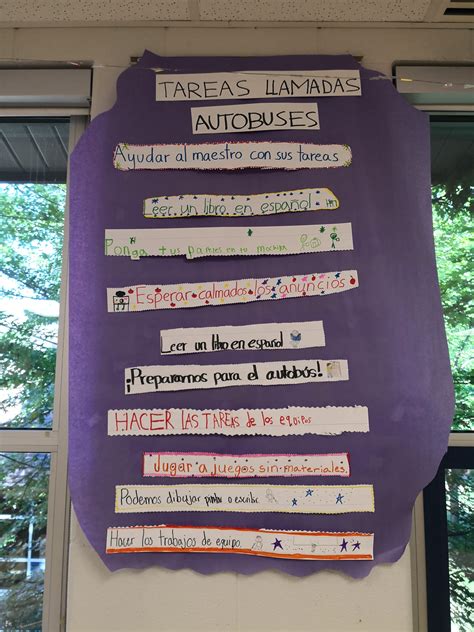 TAREAS LLAMADAS
AUTOBUSES
Ayudar al maestro con sus tareas
Leer un libro en español
Ponga tus papeles en tu mochila
Esperar calmados los anuncios
Leer un libro en español
¡Prepararnos para el autobús!
HACER LAS TAREAS de los equipos
Jugar a juegos sin materiales.
Podemos dibujar pintar o escribir.
Hacer los trabajos de equipo.